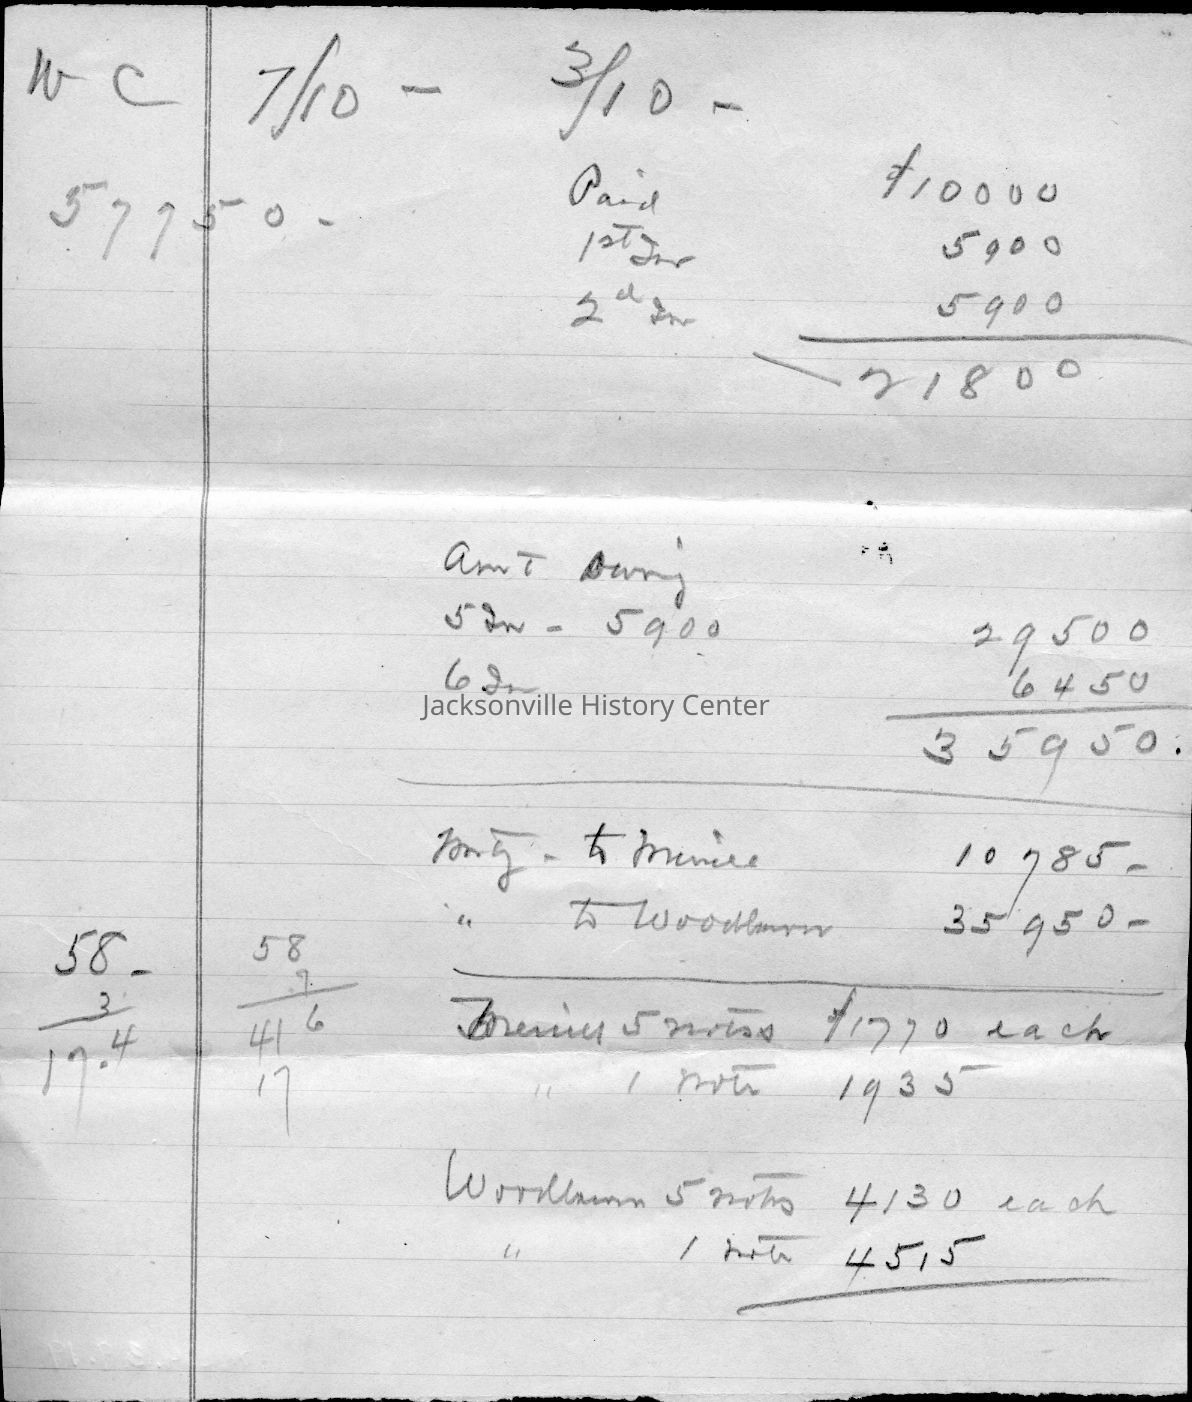 W C 7/10 - 3/10 -
57750 -
Paid $10000
1st In 5900
2d In 5900
21800
Amt Owing
5 In - 5900 29500
6 In 6450
Jacksonville History Center
35950.
Mtg - to 10785 -
" to Woodburn 35950 -
58 -
3
17.4
58
7
41 6
17
5 notes $1770 each
" 1 note 1935
Woodburn 5 notes 4130 each
" 1 note 4515